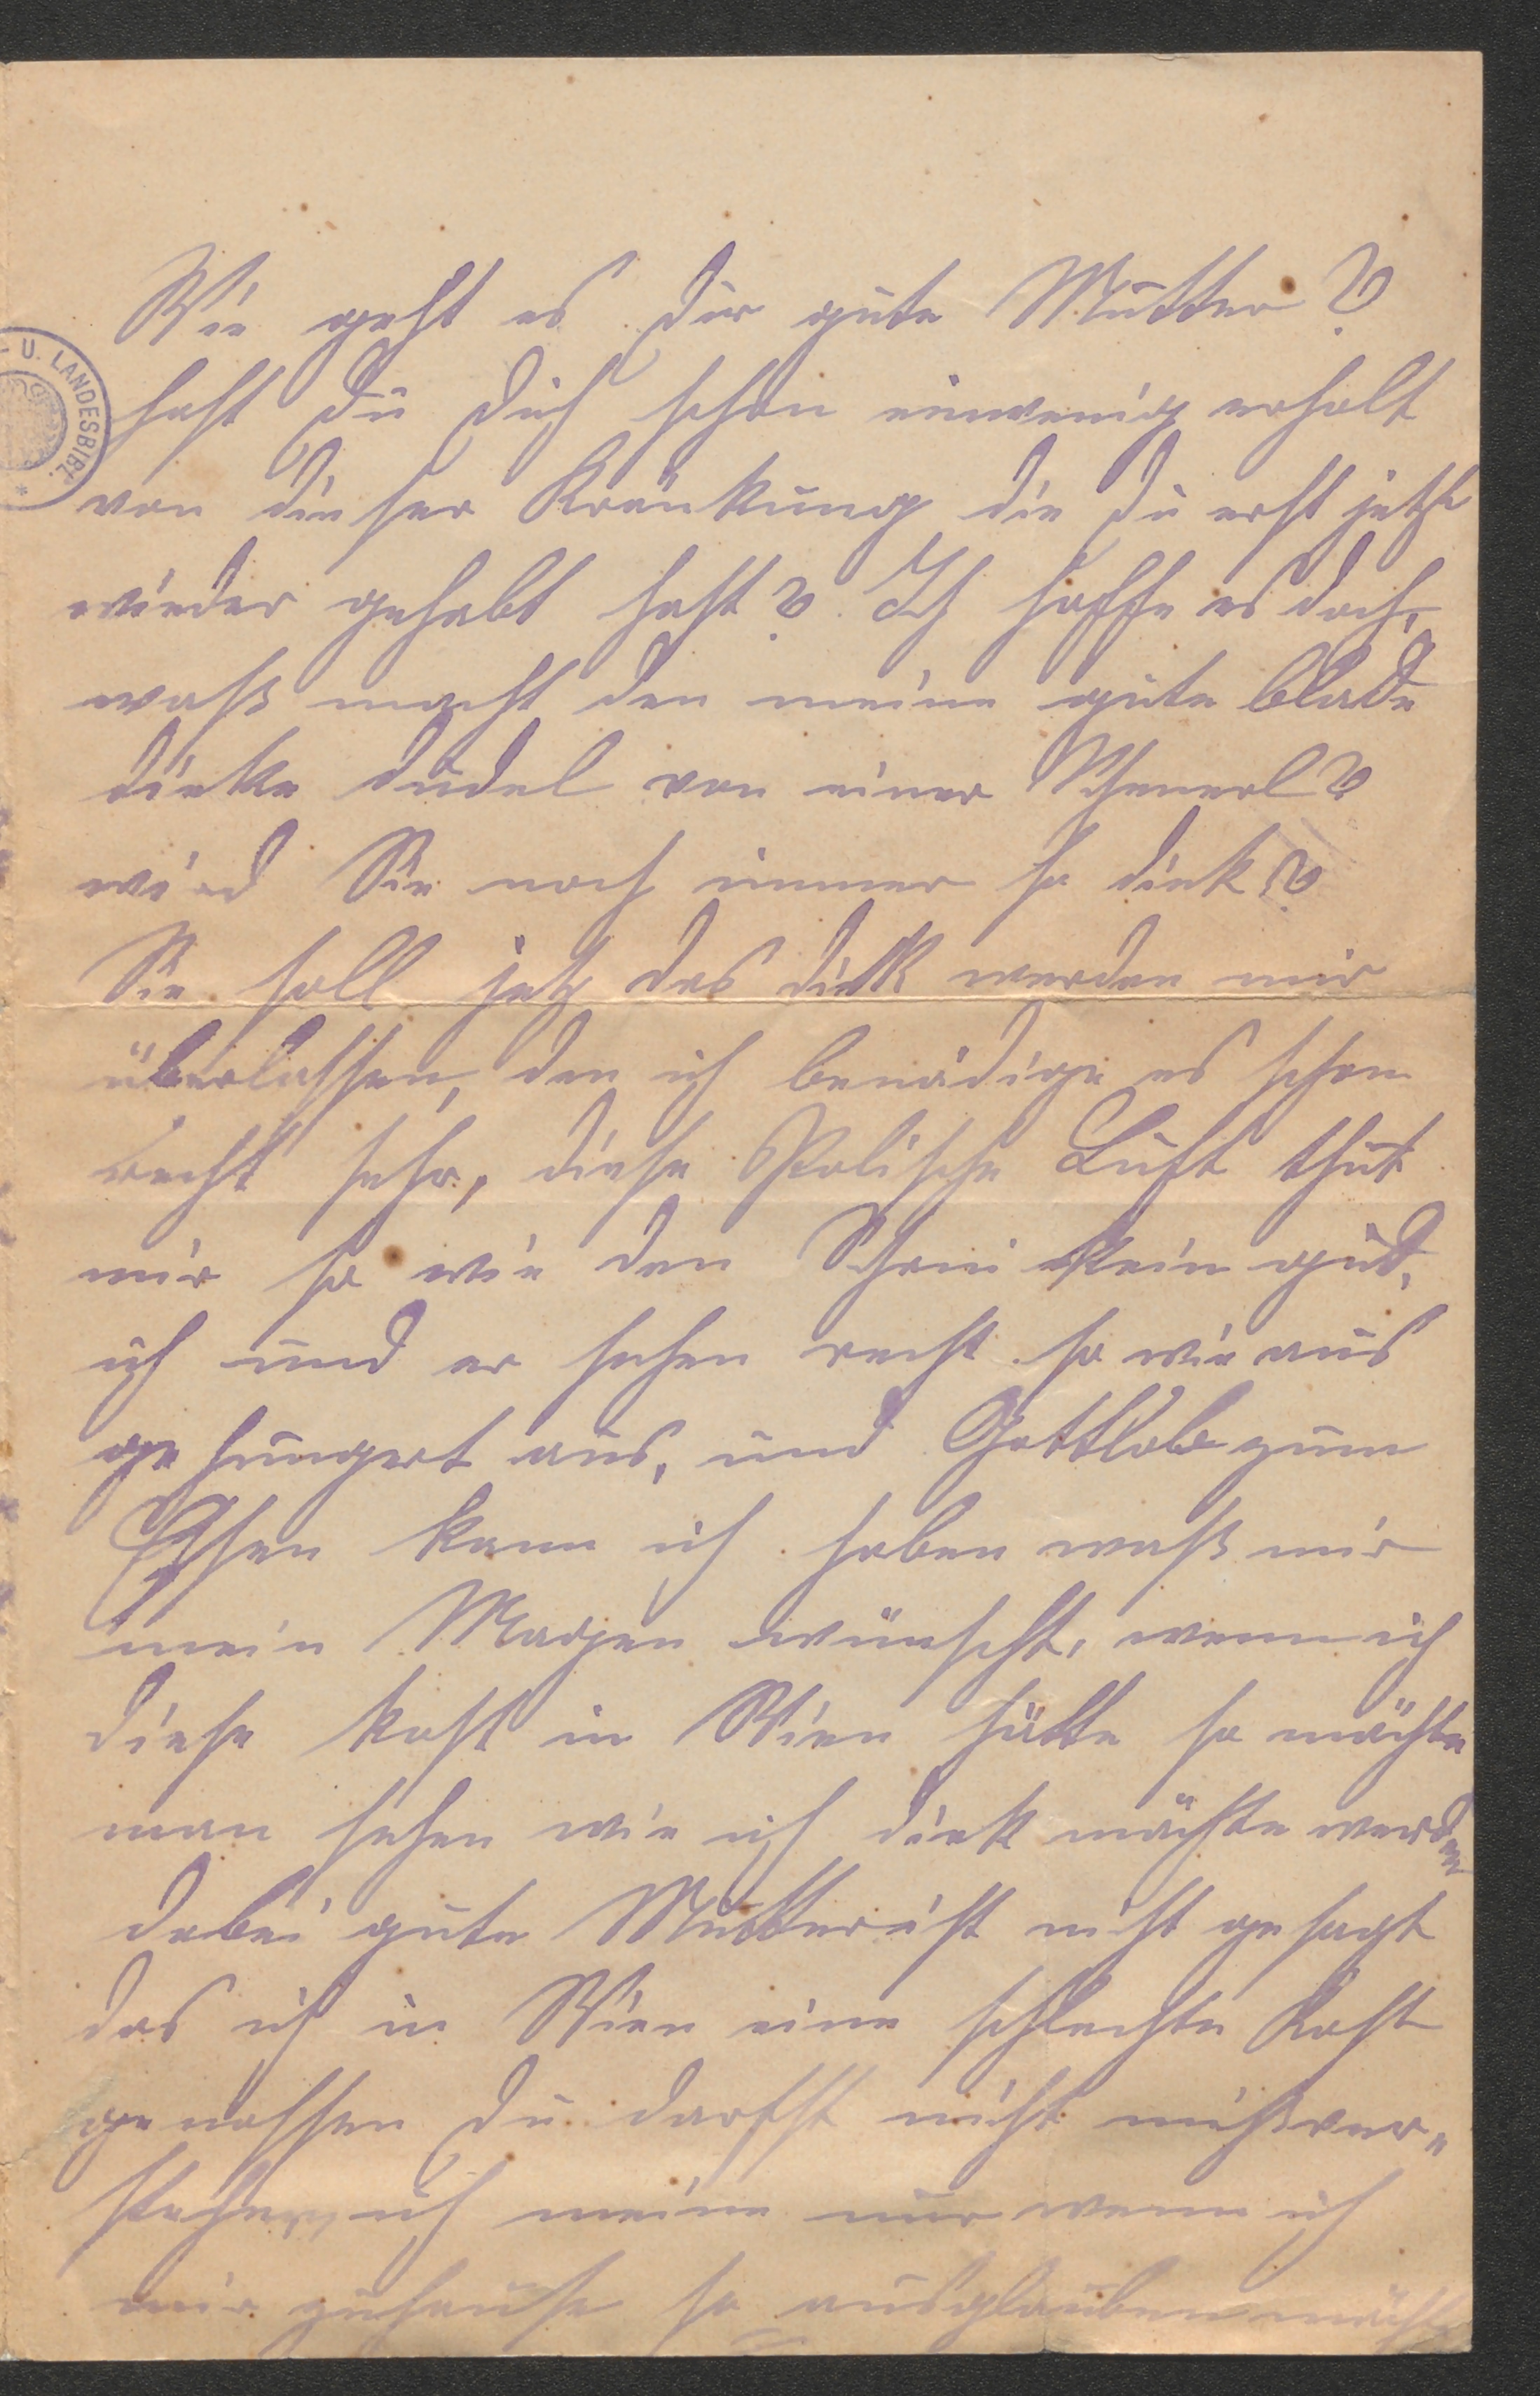 Wie geht es dir gute Mutter?
U. LANDESBIBL.
hast du dich schon einwenig erholt
von dieser Kränkung die du erst jetzt
wieder gehabt hast? Ich hoffe es doch,
waß macht den meine gute blade
dicke dudel von einer
wird Sie noch immer so dick?
Sie soll jetz das dick werden mir
überlassen, den ich benödige es schon
recht sehr, diese Polische Luft thut
mir so wie den Schani kein gut,
ich und er sehen recht so wie aus
gehungert aus, und Gottlob zum
Essen kann ich haben waß mir
mein Magen wünscht, wenn ich
diese kost in Wien hätte so möchte
man sehen wie ich dick möchte werden
dabei gute Mutter ist nicht gesagt
das ich in Wien eine schlechte Kost
genossen du darfst nicht mißver„
stehen, ich meine nur wenn ich
mir zuhause so möchte